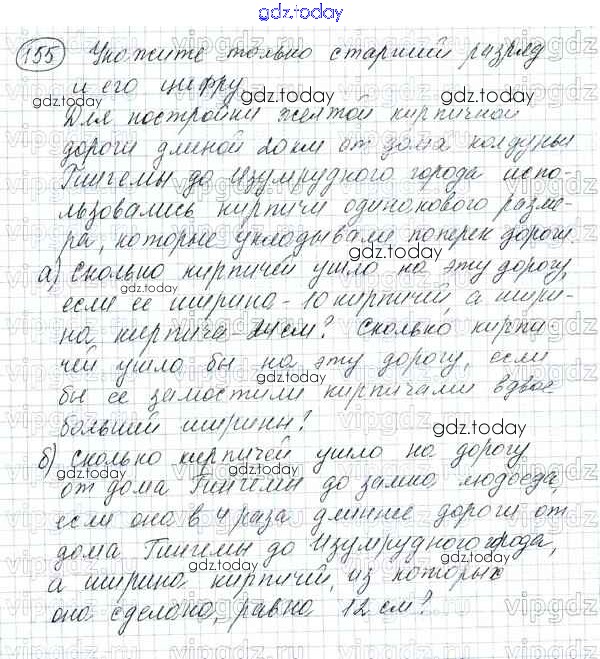 gdz.today
155 Укажите только старший разряд
и его цифру
gdz.today
gdz.today
Для постройки желтой кирпичной
дороги длиной 20 км от дома колдуньи
Гингемы до Изумрудного города испо-
льзовались кирпичи одинакового разме-
ра, которые укладывали поперек дороги.
а) Сколько кирпичей ушло на эту дорогу,
если ее ширина - 10 кирпичей, а шири-
на кирпича 24 см? Сколько кирпи
чей ушло бы на эту дорогу, если
бы ее замостили кирпичами вдвое
большей ширины?
gdz.today
б) Сколько кирпичей ушло на дорогу
от дома Гингемы до замка людоеда,
если она в 4 раза длиннее дороги от
дома Гингемы до Изумрудного города,
а ширина кирпичей, из которых
она сделана, равна 12 см?
gdz.today